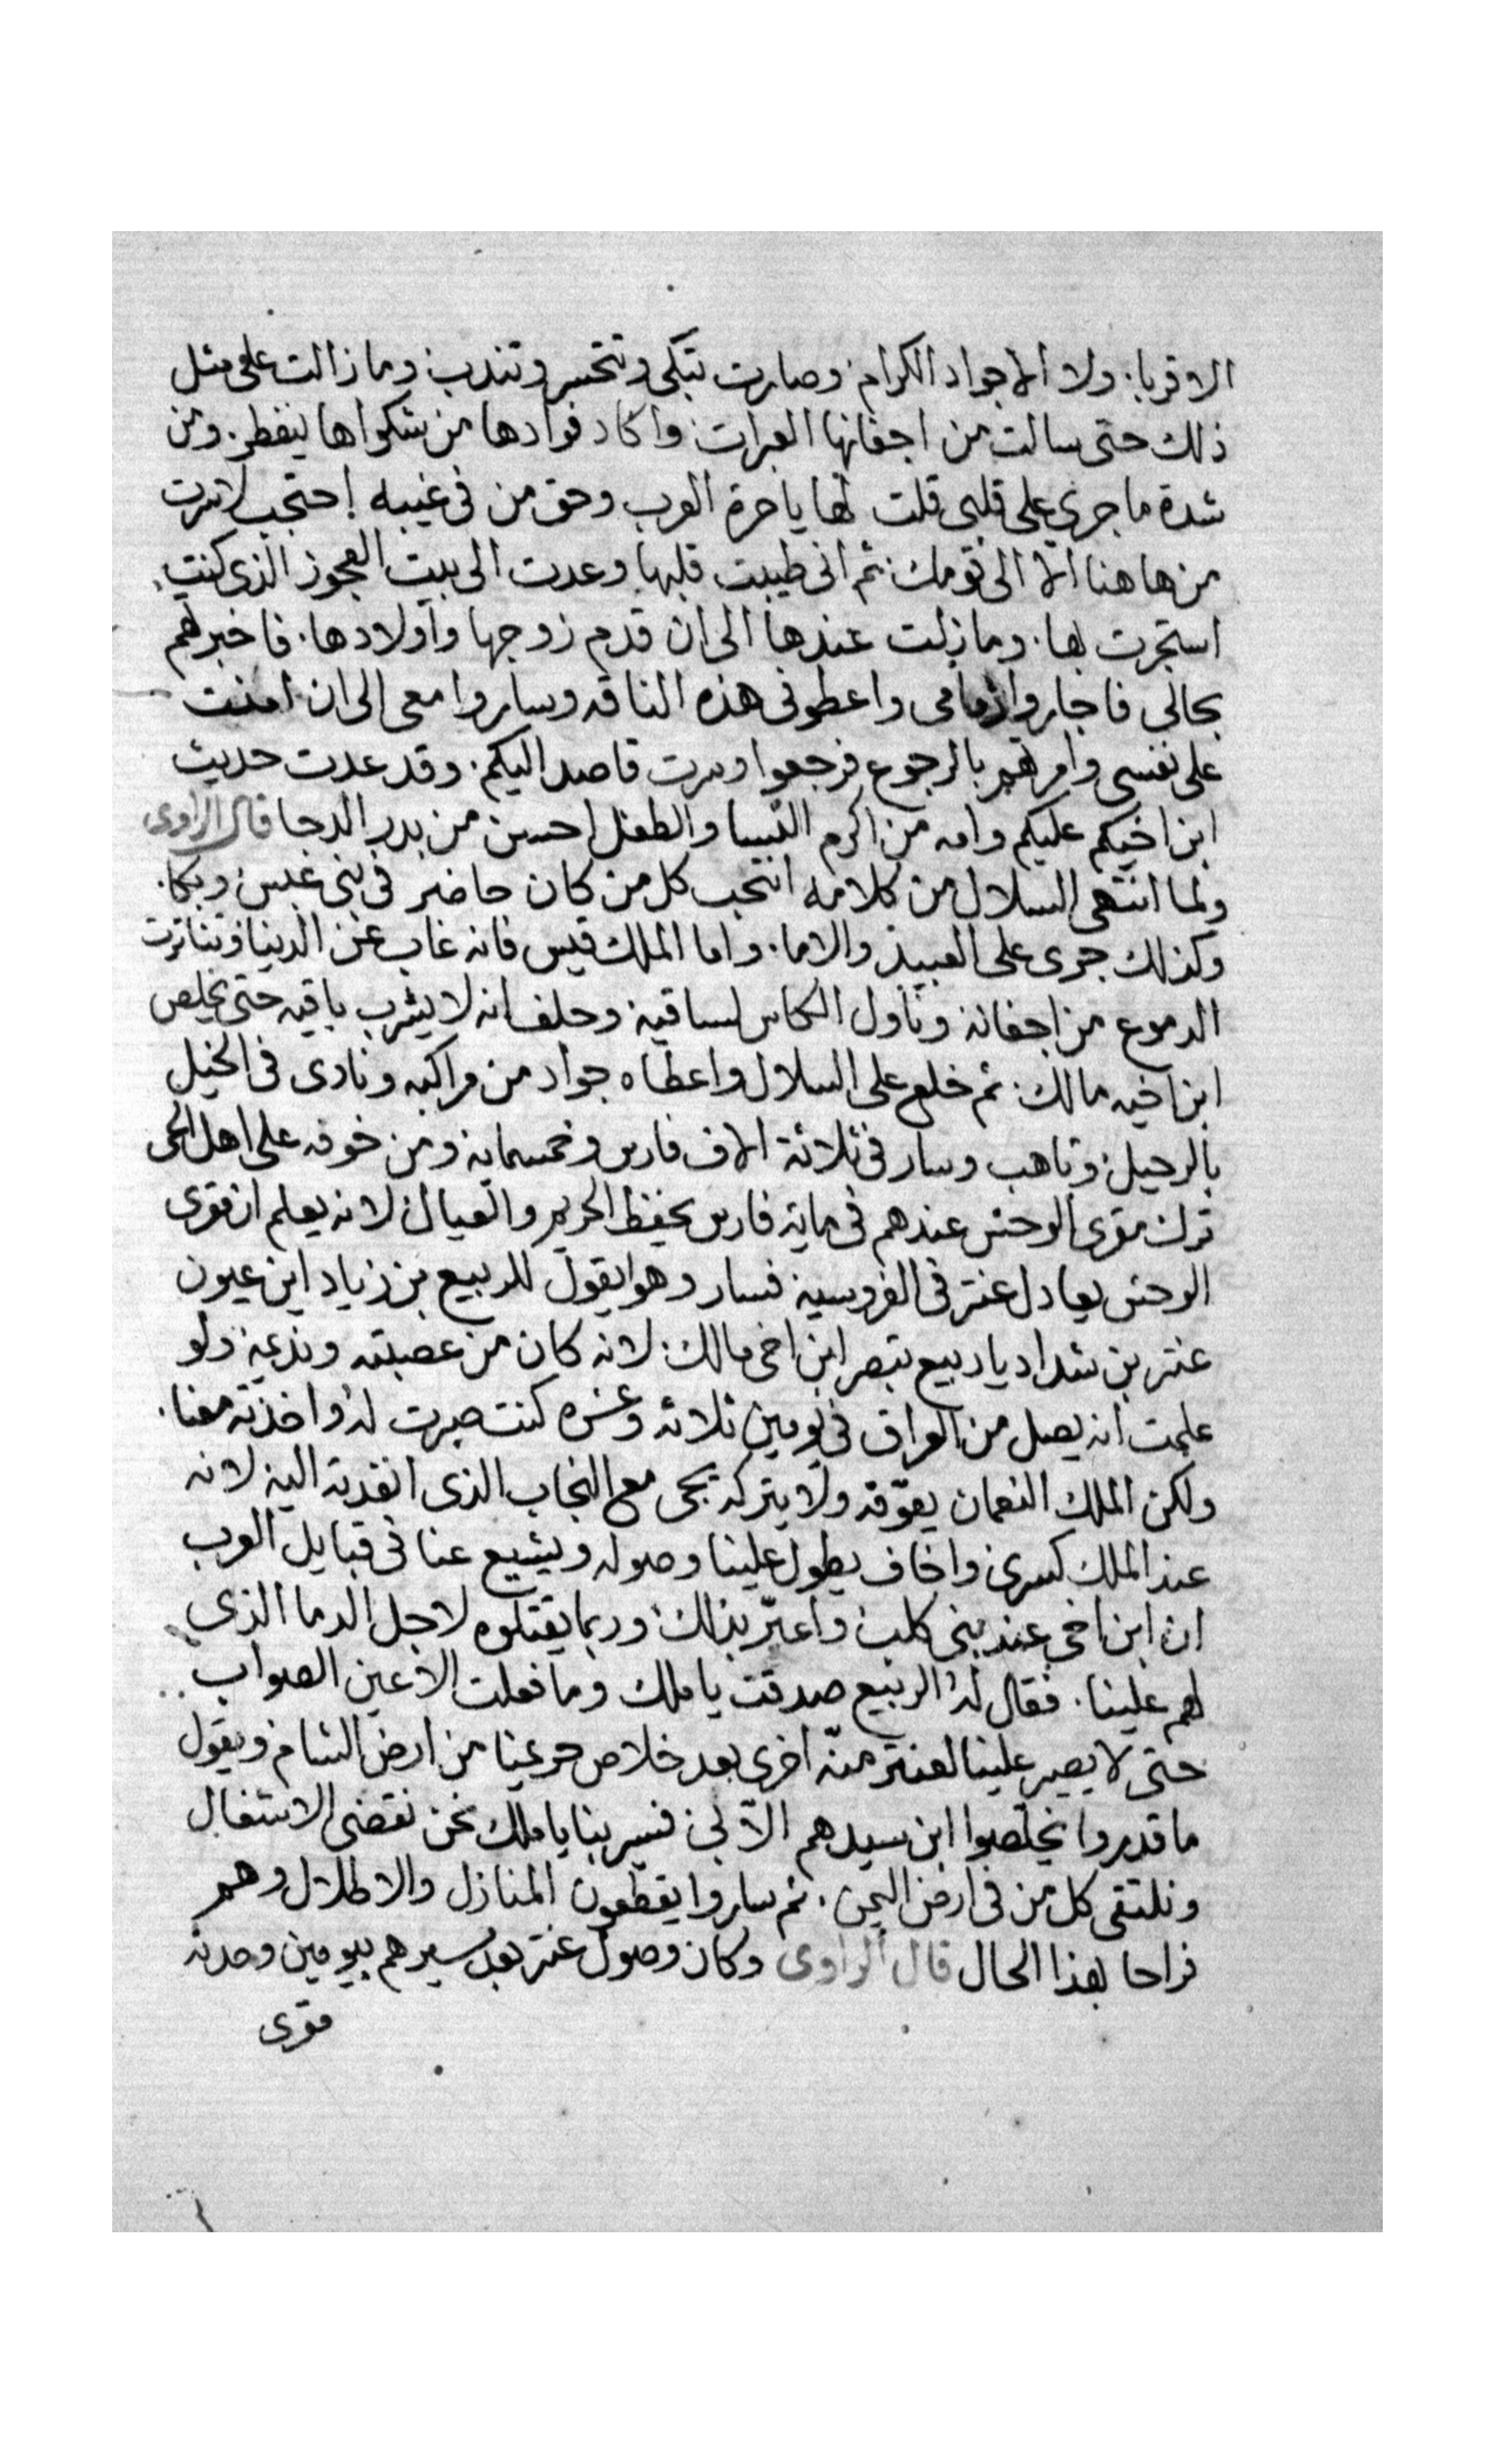 الاقربا. ولا الاجواد الكرام. وصارت تبكى وتتحسر وتندب. ومازالت على مثل
ذلك حتى سالت من اجفانها العبرات واكاد فوادها من شكواها ينفطر. ومن
شدة ما جرى على قلبى قلت لها ياحرة العرب وحق من فى غيبه احتجب لاسرت
من هاهنا الا الى قومك. ثم انى طيبت قلبها وعدت الى بيت العجوز الذى كنت
استجرت بها. ومازلت عندها الى ان قدم زوجها واولادها. فاخبرتهم
بحالى فاجاروا ذمامى واعطونى هذه الناقه وساروا معى الى ان امنت
على نفسى وامرتهم بالرجوع فرجعوا وسرت قاصد اليكم. وقد عدت حديث
ابن اخيكم عليكم وامه من اكرم النسا والطفل احسن من بدر الدجا قال الراوى
ولما انتهى السلال من كلامه انتحب كل من كان حاضر فى بنى عبس وبكا.
وكذلك جرى على العبيد والاما. واما الملك قيس فانه غاب عن الدنيا وتناثرت
الدموع من اجفانه وناول الكاس لساقيه وحلف انه لا يشرب باقيه حتى يخلص
ابن اخيه مالك. ثم خلع على السلال واعطاه جواد من مراكبه ونادى فى الخيل
بالرحيل وتاهب وسار فى ثلاثة الاف فارس وخمسمايه ومن خوفه على اهل الحى
ترك مقرى الوحش عندهم فى ماية فارس يحفظ الحريم والعيال لانه يعلم ان مقرى
الوحش يعادل عنتر فى الفروسيه فسار وهو ايقول للربيع بن زياد اين عيون
عنتر بن شداد يا ربيع تبصر ابن اخى مالك. لانه كان من عصبته وندعيه ولو
علمت انه يصل من العراق فى يومين ثلاثه وعشره كنت صبرت له واخذته معنا.
ولكن الملك النعمان يعوقه ولا يتركه يجى مع النجاب الذى انفدته اليه لانه
عند الملك كسرى واخاف يطول علينا وصوله ويشيع عنا فى قبايل العرب
ان ابن اخى عند بنى كلب واعير بذلك وربما يقتلوه لاجل الدما الذى
لهم علينا. فقال له الربيع صدقت يا ملك وما فعلت الا عين الصواب
حتى لا يصير علينا لعنتر منه اخرى بعد خلاص حريمنا من ارض الشام ويقول
ما قدروا يخلصوا ابن سيدهم الا بى فسير بنا يا ملك نحن نقضى الاشغال
ونلتقى كل من فى ارض اليمن. ثم ساروا يقطعون المنازل والاطلال وهم
فراحا بهذا الحال قال الراوى وكان وصول عنتر بعد مسيرهم بيومين وحدته
مقرى